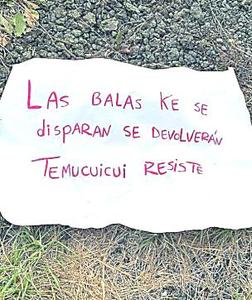 LAS BALAS KE SE
disparan se devolverán
Temucuicui resiste